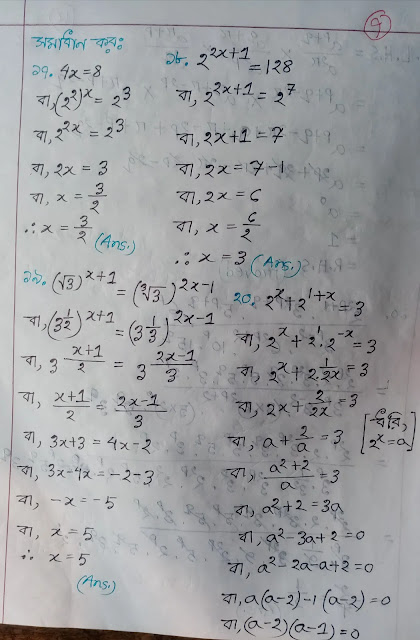 ৭
সমাধান কর:
১৭. 4x=8
বা, (2²)ˣ = 2³
বা, 2²ˣ = 2³
বা, 2x = 3
বা, x = 3/2
∴ x = 3/2 (Ans.)
১৮. 2²ˣ⁺¹ = 128
বা, 2²ˣ⁺¹ = 2⁷
বা, 2x+1 = 7
বা, 2x = 7-1
বা, 2x = 6
বা, x = 6/2
∴ x = 3 (Ans.)
১৯. (√3)ˣ⁺¹ = (∛3)²ˣ⁻¹
বা, (3^(1/2))ˣ⁺¹ = (3^(1/3))²ˣ⁻¹
বা, 3^((x+1)/2) = 3^((2x-1)/3)
বা, (x+1)/2 = (2x-1)/3
বা, 3x+3 = 4x-2
বা, 3x-4x = -2-3
বা, -x = -5
বা, x = 5
∴ x = 5
(Ans.)
২০. 2ˣ+2¹⁺ˣ = 3
বা, 2ˣ+2¹.2⁻ˣ = 3
বা, 2ˣ+2.1/2x = 3
বা, 2x+2/2x = 3
বা, a+2/a = 3 [ধরি, 2ˣ=a]
বা, (a²+2)/a = 3
বা, a²+2 = 3a
বা, a²-3a+2 = 0
বা, a²-2a-a+2 = 0
বা, a(a-2)-1(a-2) = 0
বা, (a-2)(a-1) = 0